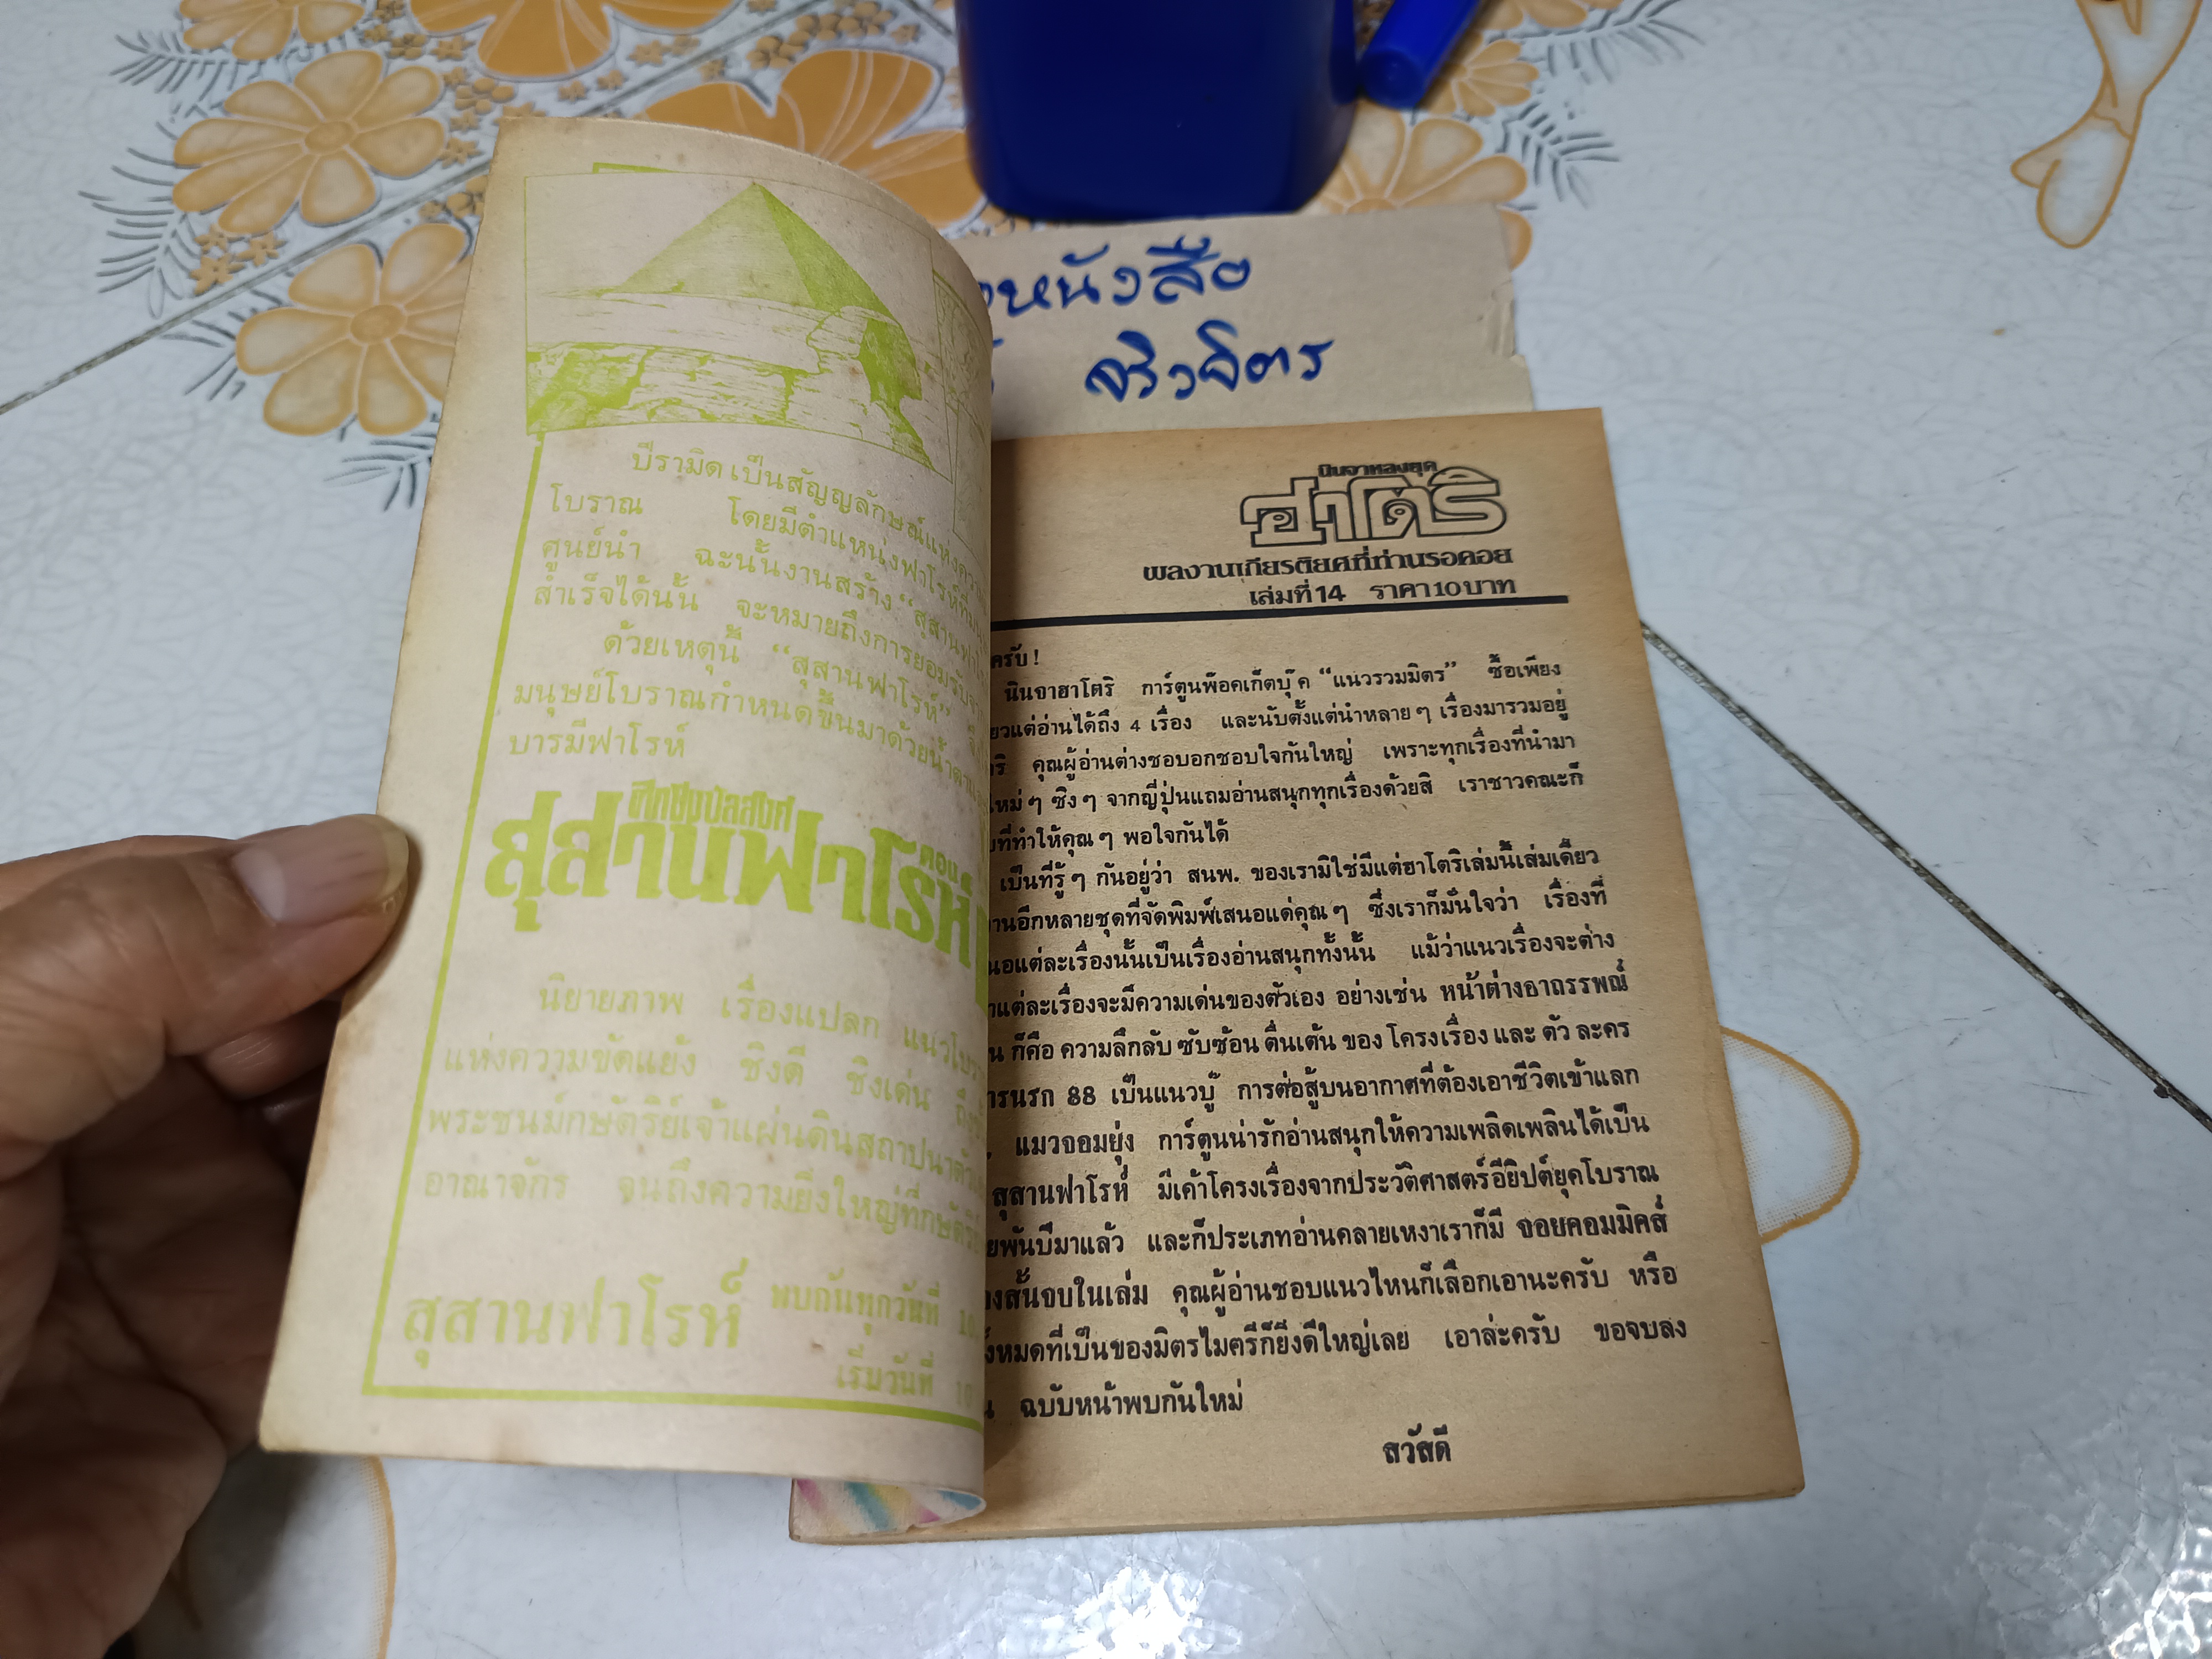 หนังสือ
จริวจิตร
ปิรามิด เป็นสัญญลักษณ์แห่งความ
โบราณ โดยมีตำแหน่งฟาโรห์ที่
ศูนย์นำ ฉะนั้นงานสร้าง “สุสานฟาโ
สำเร็จได้นั้น จะหมายถึงการยอมรับ
ด้วยเหตุนี้ “สุสานฟาโรห์”
มนุษย์โบราณกำหนดขึ้นมาด้วยน้ำตา
บารมีฟาโรห์
ศึกชิงบัลลังก์
ตอน
สุสานฟาโรห์
นิยายภาพ เรื่องแปลก แนวโบ
แห่งความขัดแย้ง ชิงดี ชิงเด่น ถึง
พระชนม์กษัตริย์เจ้าแผ่นดินสถาปนาตัว
อาณาจักร จนถึงความยิ่งใหญ่ที่กษัตริ
สุสานฟาโรห์ พบกันทุกวันที่ 10
เริ่มวันที่ 10
นินจาหลงยุค
ฮาโตริ
ผลงานเกียรติยศที่ท่านรอคอย
เล่มที่ 14 ราคา 10 บาท
ครับ!
นินจาฮาโตริ การ์ตูนพ๊อคเก็ตบุ๊ค “แนวรวมมิตร” ซื้อเพียง
ยวแต่อ่านได้ถึง 4 เรื่อง และนับตั้งแต่นำหลายๆ เรื่องมารวมอยู่
ริ คุณผู้อ่านต่างชอบอกชอบใจกันใหญ่ เพราะทุกเรื่องที่นำมา
ใหม่ๆ ซิงๆ จากญี่ปุ่นแถมอ่านสนุกทุกเรื่องด้วยสิ เราชาวคณะก็
ที่ทำให้คุณๆ พอใจกันได้
เป็นที่รู้ๆ กันอยู่ว่า สนพ. ของเรามิใช่มีแต่ฮาโตริเล่มนี้เล่มเดียว
านอีกหลายชุดที่จัดพิมพ์เสนอแด่คุณๆ ซึ่งเราก็มั่นใจว่า เรื่องที่
นอแต่ละเรื่องนั้นเป็นเรื่องอ่านสนุกทั้งนั้น แม้ว่าแนวเรื่องจะต่าง
าแต่ละเรื่องจะมีความเด่นของตัวเอง อย่างเช่น หน้าต่างอาถรรพณ์
น ก็คือ ความลึกลับ ซับซ้อน ตื่นเต้น ของ โครงเรื่อง และ ตัว ละคร
ารนรก 88 เป็นแนวบู๊ การต่อสู้บนอากาศที่ต้องเอาชีวิตเข้าแลก
แมวจอมยุ่ง การ์ตูนน่ารักอ่านสนุกให้ความเพลิดเพลินได้เป็น
สุสานฟาโรห์ มีเค้าโครงเรื่องจากประวัติศาสตร์อียิปต์ยุคโบราณ
ยพันปีมาแล้ว และก็ประเภทอ่านคลายเหงาเราก็มี จอยคอมมิคส์
งสั้นจบในเล่ม คุณผู้อ่านชอบแนวไหนก็เลือกเอานะครับ หรือ
ั้งหมดที่เป็นของมิตรไมตรีก็ยิ่งดีใหญ่เลย เอาล่ะครับ ขอจบลง
น ฉบับหน้าพบกันใหม่
สวัสดี